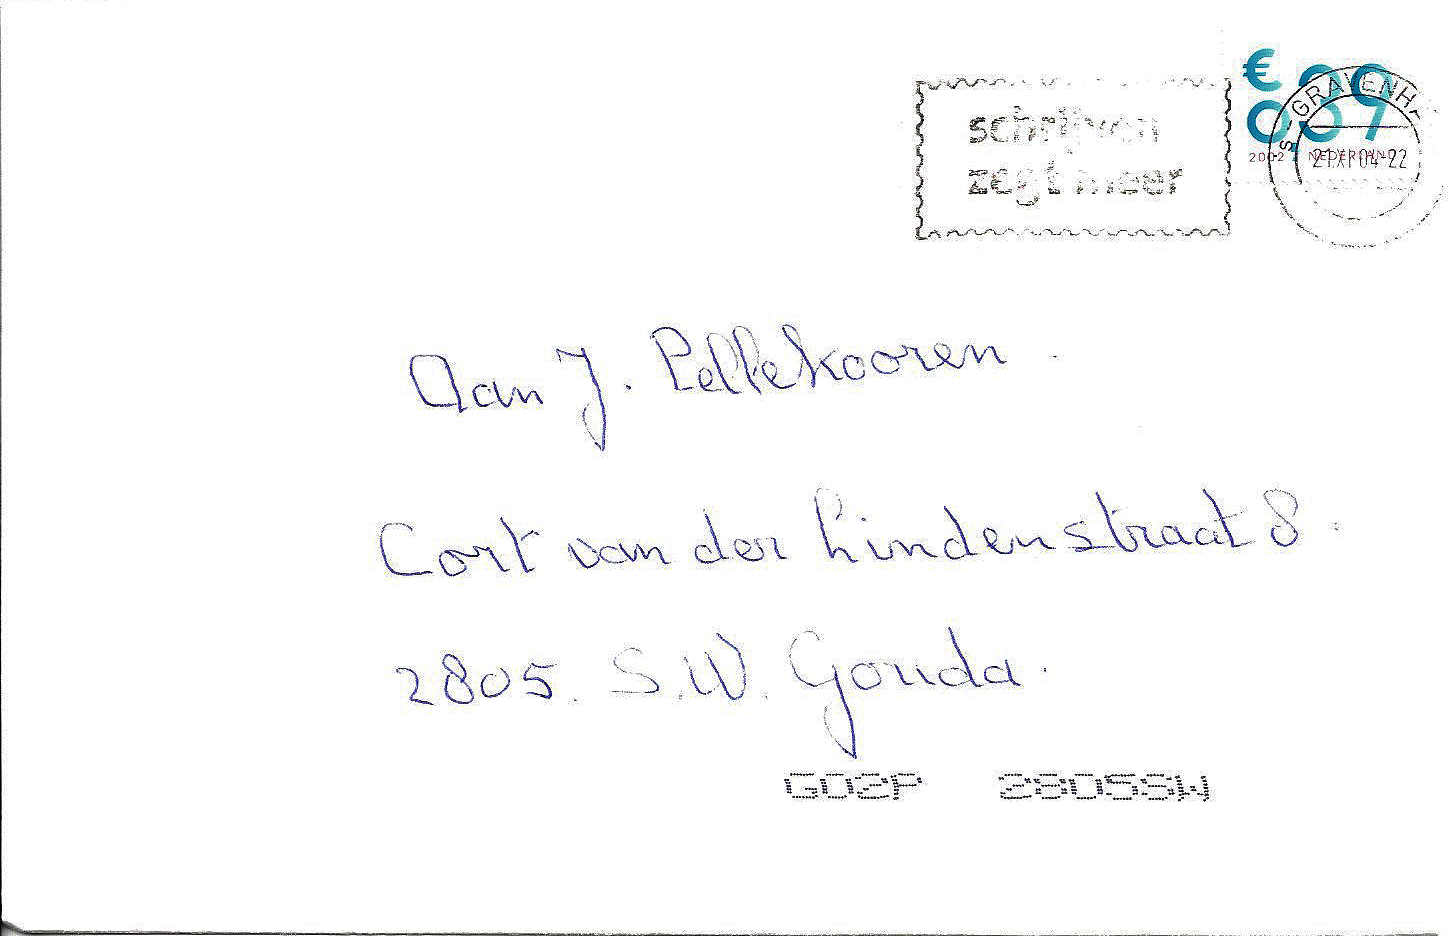 schrijven
zegt meer
€ 0,39
2002 NEDERLAND
's-GRAVENHA
21.XI.04-22
Aan J. Pellekooren.
Cort van der Lindenstraat 8.
2805. S.W. Gouda.
G02P 2805SW